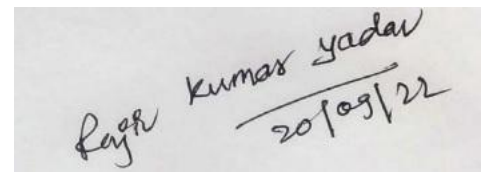 Rajir Kumar yadav
20/09/22